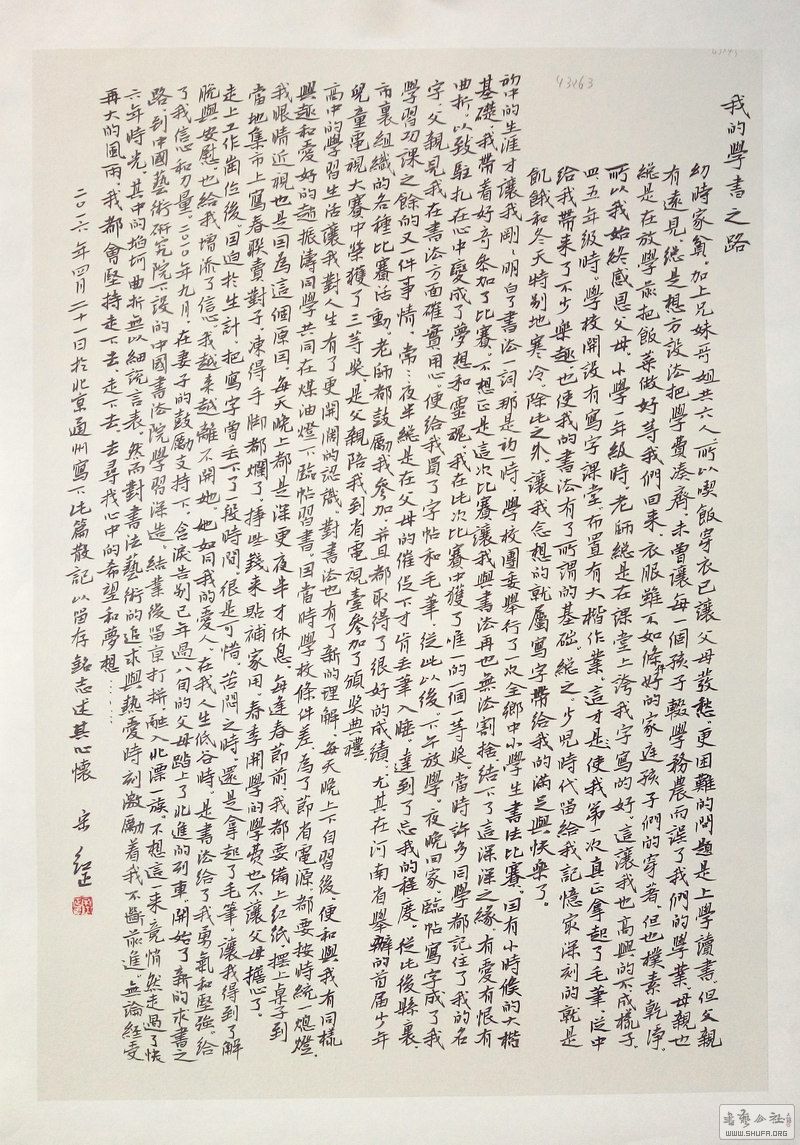 我的學書之路
幼時家貧。加上兄妹哥姐共六人，所以喫飯穿衣已讓父母發愁。更困難的問題是上學讀書。但父親
有遠見。總是想方設法把學費湊齊。未曾讓每一個孩子輟學務農而誤了我們的學業。母親也
總是在放學前把飯菜做好等我們回來。衣服雖不如條件好的家庭孩子們的穿著。但也樸素乾淨。
所以我始終感恩父母。小學一年級時。老師總是在課堂上誇我字寫的好。這讓我也高興的不成樣子。
四、五年級時。學校開設有寫字課堂。布置有大楷作業。這才是使我第一次真正拿起了毛筆。從中
給我帶來了不少樂趣。也使我的書法有了所謂的基礎。總之少兒時代留給我記憶最深刻的就是
飢餓和冬天特別地寒冷。除此之外。讓我念想的就屬寫字帶給我的滿足與快樂了。
初中的生涯才讓我剛剛明白了書法一詞。那是初一時。學校團委舉行了一次全鄉中小學生書法比賽。因有小時候的大楷
基礎。我帶着好奇參加了比賽。不想正是這次比賽。讓我與書法再也無法割捨。結下了這深深之緣。有愛有恨有
曲折。以致駐扎在心中變成了夢想和靈魂。我在此次比賽中獲了唯一的個一等奖。當時許多同學都記住了我的名
字。父親見我在書法方面確實用心。便給我買了字帖和毛筆。從此以後。下午放學。夜晚回家。臨帖寫字成了我
學習功課之餘的又一件事情。常常夜半總是在父母的催促下才肯丟筆入睡。達到了忘我的程度。從此後縣裏、
市裏組織的各種比賽活動。老師都鼓勵我參加。并且都取得了很好的成績。尤其在河南省舉辦的首届少年
兒童電視大賽中榮獲了三等奖。是父親陪我到省電視臺參加了頒奖典禮。
高中的學習生活讓我對人生有了更開闊的認識。對書法也有了新的理解。每天晚上下自習後。便和與我有同樣
興趣和愛好的趙振濤同學共同在煤油燈下臨帖習書。因當時學校條件差。為了節省電源。都要按時統一熄燈。
我眼睛近視也是因為這個原因。每天晚上都是深更夜半才休息。每逢春節前。我都要備上紅紙。摆上桌子到
當地集市上寫春聯賣對子。凍得手脚都爛了。掙些錢來貼補家用。春季開學的學費也不讓父母擔心了。
走上工作崗位後。因迫於生計。把寫字曾丟下了一段時間。很是可惜。苦悶之時。還是拿起了毛筆。讓我得到了解
脫與安慰。也給我增添了信心。我越來越離不開她。她如同我的愛人。在我人生低谷時。是書法給了我勇氣和堅強。給
了我信心和力量。二〇〇九年九月。在妻子的鼓勵支持下。含淚告别已年過八旬的父母踏上了北進的列車。開始了新的求書之
路。到中國藝術研究院下設的中國書法院學習深造。結業後留京打拼融入北漂一族。不想這一來竟悄然走過了快
六年時光。其中的焰坷曲折無以細說言表。然而對書法藝術的追求與熱愛時刻激勵着我不斷前進。無論經受
再大的風雨。我都會堅持走下去。走下去。去尋我心中的希望和夢想……
二〇一六年四月二十一日於北京通州寫下此篇散記以留存銘志述其心懷 宋紅正
43263
書藝公社
WWW.SHUFA.ORG